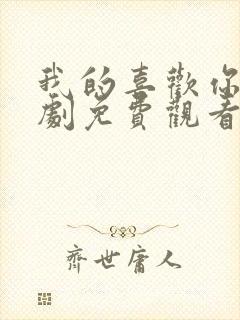 我的喜歡你
劇免費觀看
齊世庸人